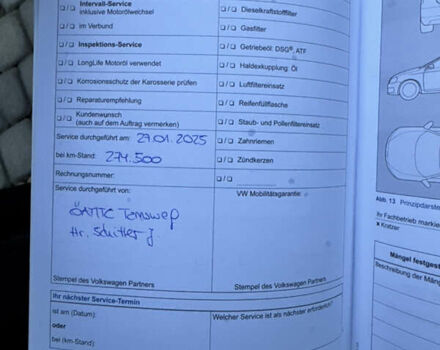 Intervall-Service
inklusive Motorölwechsel
☐/☐ im Verbund
☐/☐ Inspektions-Service
☐/☐ LongLife Motoröl verwendet
☐/☐ Korrosionsschutz der Karosserie prüfen
☐/☐ Reparaturempfehlung
☐/☐ Kundenwunsch
(auch auf dem Auftrag vermerken)
Service durchgeführt am: 29.01.2025
bei km-Stand: 274.500
Rechnungsnummer:
Service durchgeführt von:
ÖAMTC Tamsweg
Hr.
Stempel des Volkswagen Partners
Ihr nächster Service-Termin
ist am (Datum):
oder
bei (km-Stand)
☐/☐ Dieselkraftstofffilter
☐/☐ Gasfilter
☐/☐ Getriebeöl: DSG®, ATF
☐/☐ Haldexkupplung: Öl
☐/☐ Luftfiltereinsatz
☐/☐ Reifenfüllflasche
☐/☐ Staub- und Pollenfiltereinsatz
☐/☐ Zahnriemen
☐/☐ Zündkerzen
☐/☐
VW Mobilitätsgarantie:
Stempel des Volkswagen Partners
Welcher Service ist als nächster erforderlich?
Abb. 13 Prinzipdarste
Ihr Fachbetrieb markier
× Kratzer
Mängel festgest
Beschreibung der Mäng